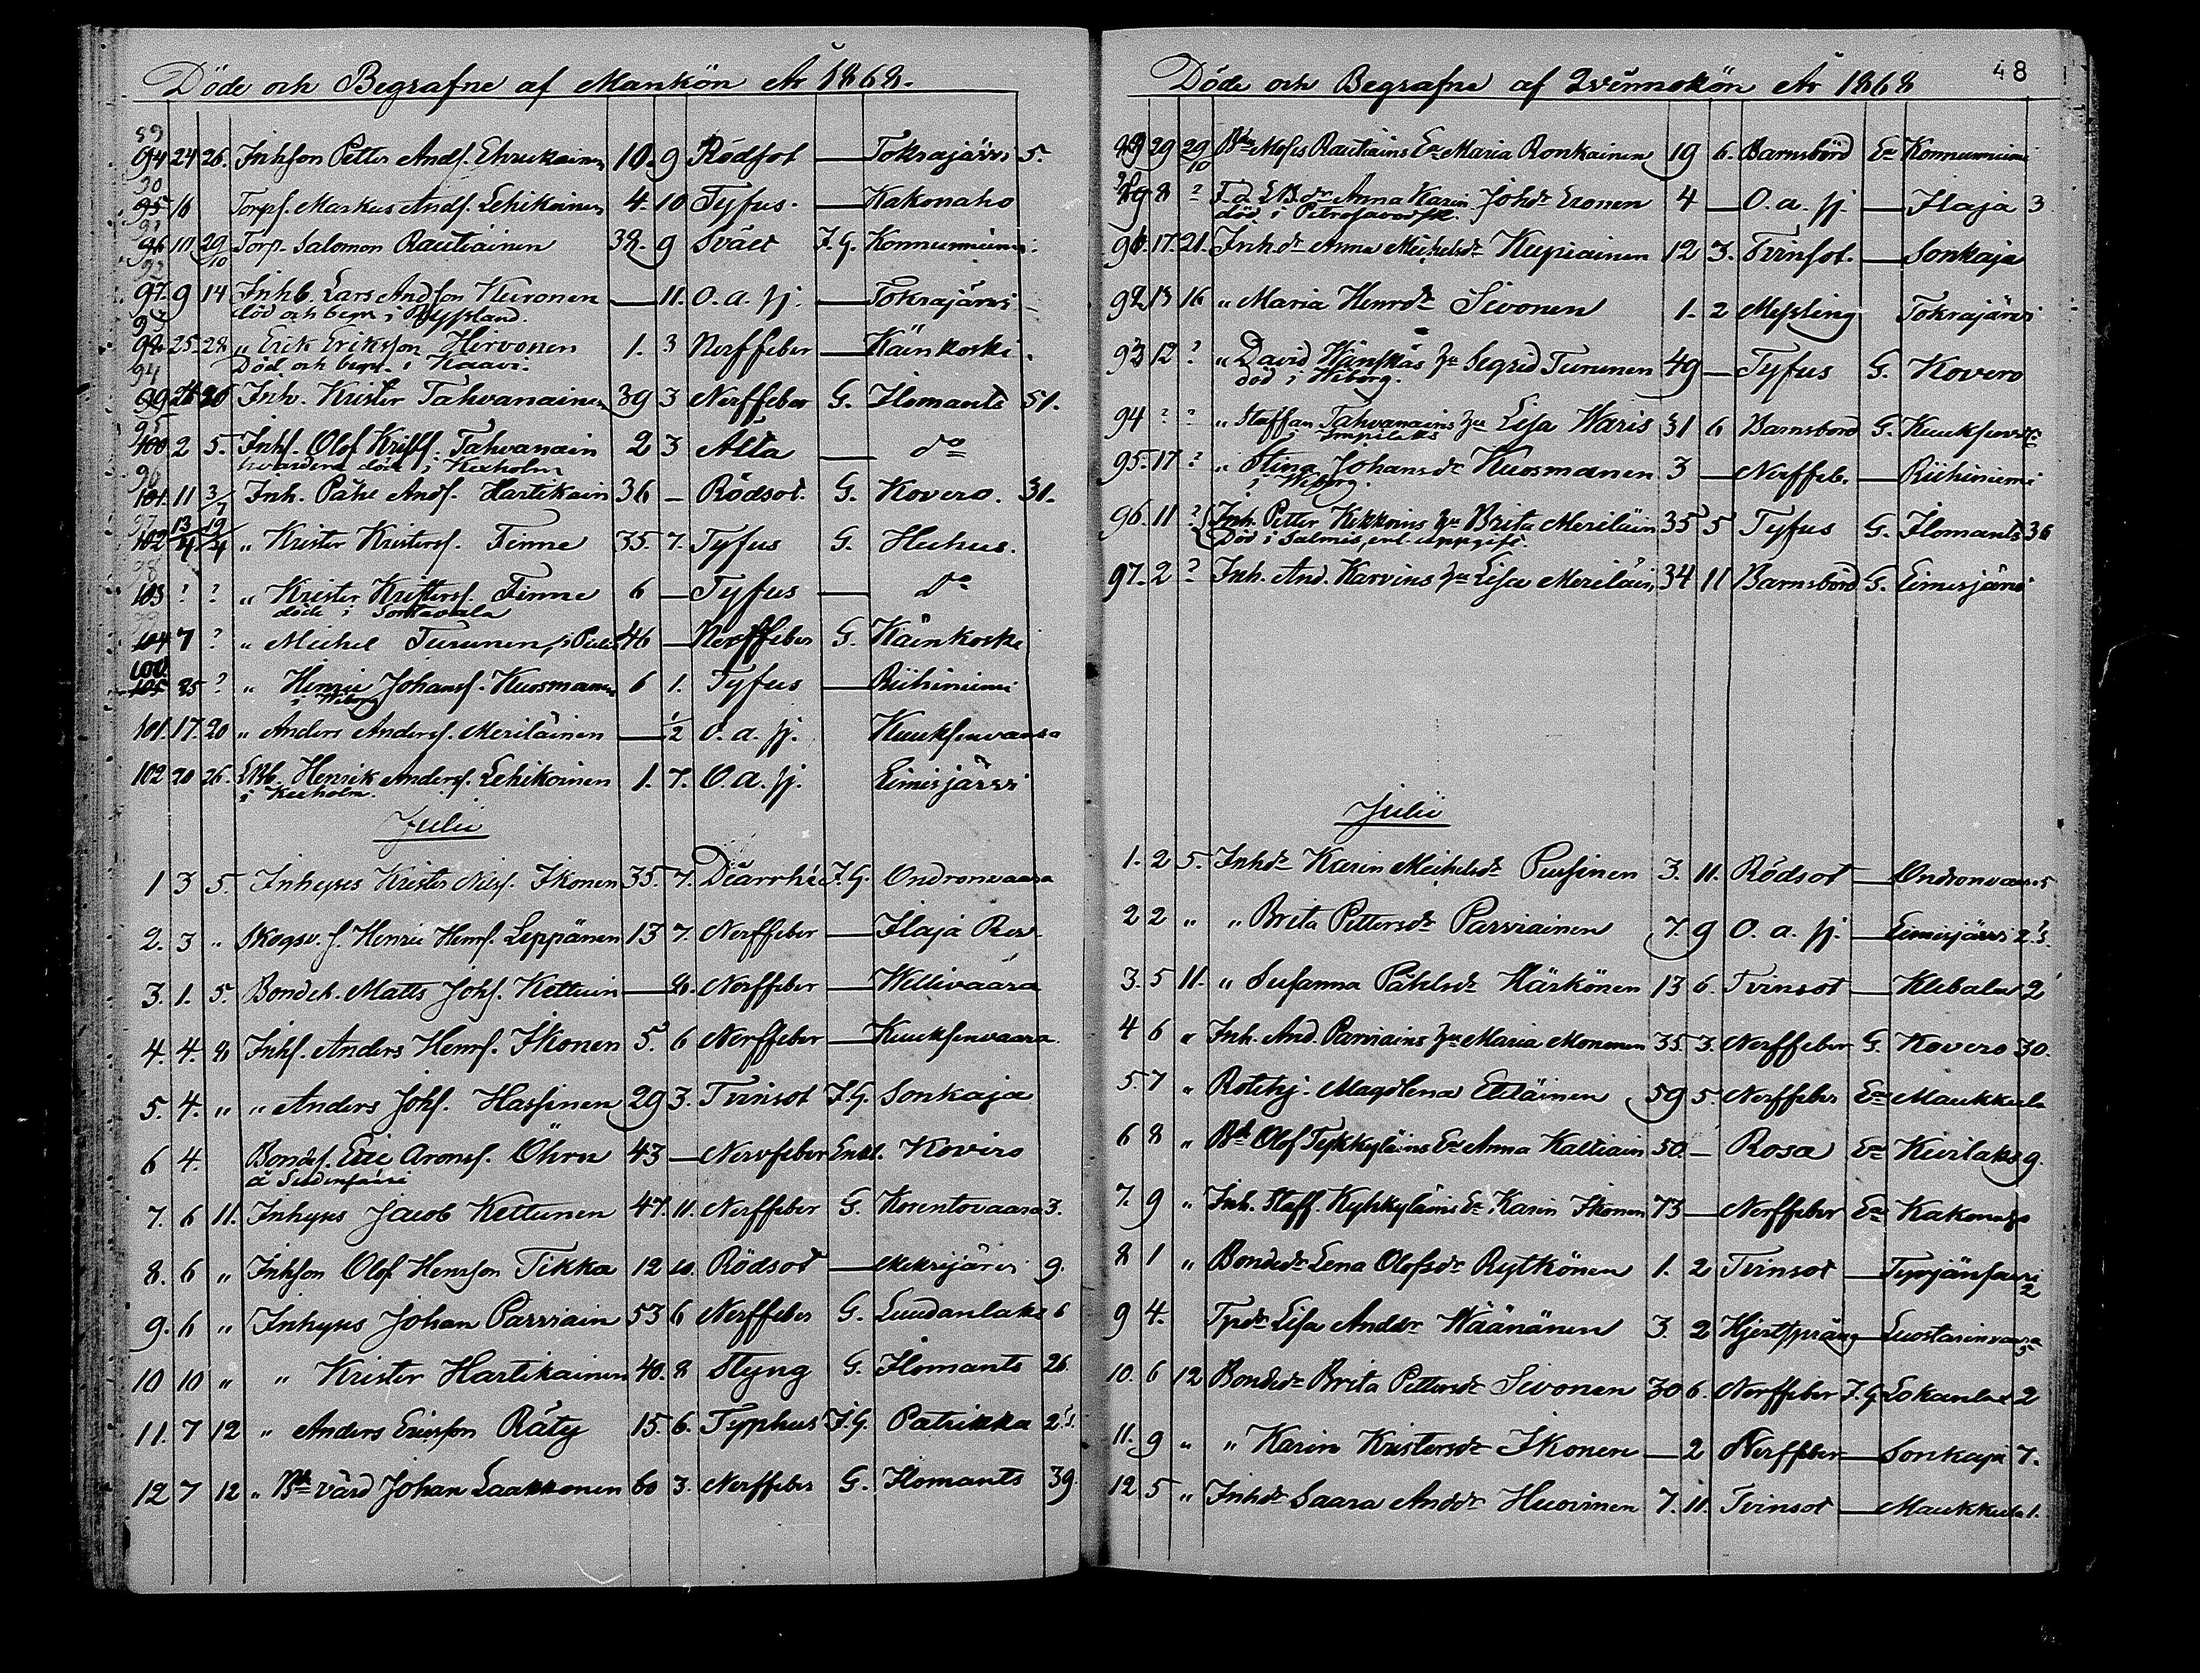 Döde och Begrafne af Mankön År 1868.
89
94 24 26. Inhson Petter Ands. 10. 9 Rödsot — Tokrajärvi 5.
90
95 16 Torps. Markus Ands. Lehikoinen 4. 10 Tyfus. — Kakonaho
91
96 10 29/10 Torp. Salomon Rautiainen 38. 9 Svält F.G. Konnunniemi
92
97. 9 14 Inhb. Lars Andson Kuronen — 11. O.a. sj. — Tokrajärvi
död och begr. i Ryssland.
93
98 25. 28 „ Erik Eriksson Hirvonen 1. 3 Nerffeber — Käinkoski.
Död och begr. i Kaavi.
94
99 26 Inh. Krister Tahvanainen 39 3 Nerffeber G. Ilomants 51.
95
100 2 5. Inhs. Olof Krists. Tahvanain 2 3 Alta — do
döde i Kexholm
96
101. 11 3/7 Inh. Påhl Ands. Hartikain 36 — Rödsot. G. Kovero. 31.
97
102 13/4 19/4 „ Krister Kristers. Finne 35. 7. Tyfus G. Huhus.
98
103 ? ? „ Krister Kristers. Finne 6 — Tyfus — do
döde i Sordavala
104 7 ? „ Michel Turunen, i 46 — Nerffeber G. Käinkoski
100.
105 25 ? „ Henric Johans. Kuosmanen 6 1. Tyfus — Riihiniemi
i Wiborg
101. 17. 20 „ Anders Anders. Meriläinen — 1/2 O.a. sj. Kuuksenvaara
102 20 26. Henrik Anders. Lehikoinen 1. 7. O.a. sj. Eimisjärvi
i Kexholm.
Julii
1 3 5. Inhyses Krister Nils. Ikonen 35. 7. Diarrhé F.G. Ondronvaara
2. 3 „ Skogsv. s. Henric Henrs. Leppänen 13 7. Nerffeber — Ilaja
3. 1. 5. Bondeb. Matts Johs. Kettuin — Nerffeber — Wellivaara
4. 4. 8 Inhs. Anders Henrs. Ikonen 5. 6 Nerffeber — Kuuksenvaara
5. 4. „ „ Anders Johs. Hassinen 29 3. Tvinsot F.G. Sonkaja
6 4. Bondes. Eric Arons. Öhrn 43 — Nervfeber Enkl. Kovero
7. 6 11. Inhyses Jacob Kettunen 47. 11. Nerffeber G. Korentovaara 3.
8. 6 „ Inhson Olof Henrson Tikka 12 10. Rödsot — Mekrijärvi 9.
9. 6 „ Inhyses Johan Parviain 53 6 Nerffeber G. Luudanlaks 6
10 10 „ „ Krister Hartikainen 40. 8 Styng G. Ilomants 26.
11. 7 12 „ Anders Ericsson Räty 15. 6. Typhus F.G. Patrikka 2
12 7 12 „ Bdevärd Johan Laakkonen 60 3. Nerffeber G. Ilomants 39.
48
Döde och Begrafne af Qvinnokön År 1868
29 29/10 Bde Moses Rautiains Ea Maria Ronkainen 19 6. Barnsbörd Ea Konnunniemi
8 ? Anna Karin Johdr Eronen 4 — O.a. sj. — Ilaja 3
död i Petrosavodsk.
91. 17. 21. Inh.dr Anna Michelsdr Kupiainen 12 3. Tvinsot. — Sonkaja
92 13 16 „ Maria Henrdr Sivonen 1. 2 Messling Tokrajärvi
93 12 ? „ David Hänskäs hu Segrid Turunen 49 — Tyfus G. Kovero
död i Wiborg.
94 ? ? „ Staffan Tahvanains hu Lisa Waris 31 6 Barnsbord G.
i Impilaks
95. 17 ? „ Stina Johansdr Kuosmanen 3 — Nerffeb. — Riihiniemi
i Wiborg.
96. 11 ? Inh. Petter Kekkoins hu Brita Meriläin 35 5 Tyfus G. Ilomants 36
Död i Salmis, enl. uppgift.
97. 2 ? Inh. And. Karvins hu Lisa Meriläin 34 11 Barnsbörd G. Eimisjärvi
Julii
1. 2 5. Inhdr Karin Michelsdr Pursinen 3. 11. Rödsot — Ondronvaara 5
2 2 „ „ Brita Pettersdr Parviainen 7. 9 O.a. sj. — Eimisjärvi 2
3. 5 11. „ Susanna Påhlsdr Härkönen 13 6. Tvinsot — Klibala 2
4 6 „ Inh. And. Parviains hu Maria Mononen 35. 3. Nerffeber G. Kovero 30.
5. 7 „ Rotehj. Magdlena Eteläinen 59 5. Nerffeber Ea Maukkula
6 8 „ Bde Olof Tykkyläins Ea Anna Kaltiain 50. — Rosa Ea Kivilaks 9.
7. 9 „ Inh. Staff. Kykkyläins Ea Karin Ikonen 73 — Nerffeber Ea Kakonaho
8 1 „ Bondedr Lena Olofsdr Rytkönen 1. 2 Tvinsot — Tyrjänsaari 2
9 4. Tpdr Lisa Andsdr Wäänänen 3. 2 Hjertsprång — Luostarinvaara 5
10. 6 12 Bondedr Brita Pettersdr Sivonen 30 6. Nerffeber F.G. Lokanlax 2
11. 9 „ „ Karin Kristersdr Ikonen — 2 Nerffeber — Sonkaja 7.
12 5 „ Inhdr Saara Anddr Huovinen 7. 11. Tvinsot — Maukkula 1.